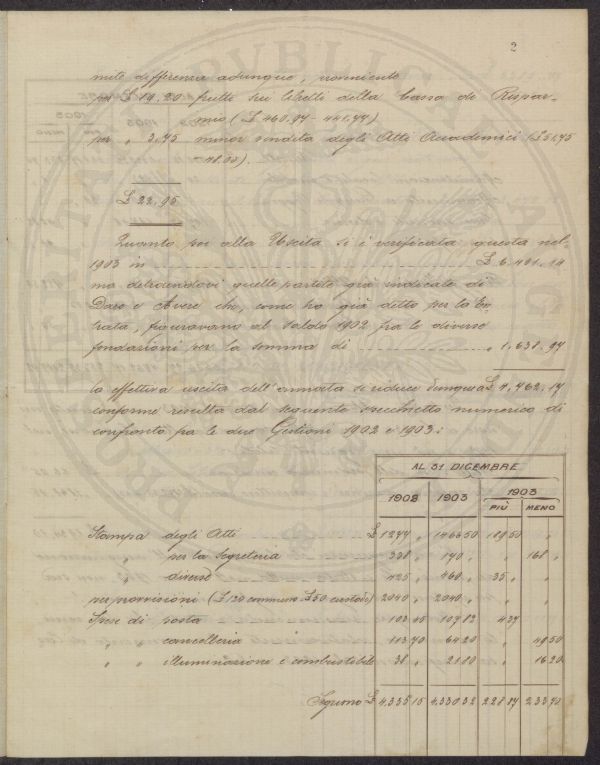 2
mite differenza adunque, proveniente
per £ 19.20 frutto sui libretti della Cassa di Rispar-
mio (£ 460,97 - 441,77)
per " 3,75 minor vendita degli Atti Accademici (£ 51,75
- 48,00).
£ 22,95
Quanto poi alla Uscita si è verificata questa nel
1903 in £ 6.401.14
ma detraendovi quelle partite già indicate di
Dare e Avere che, come ho già detto per la En-
trata, figuravano al saldo 1902 fra le diverse
fondazioni per la somma di " 1,638.97
la effettiva uscita dell'annata si riduce dunque a £ 4,762,17
conforme risulta dal seguente specchietto numerico di
confronto fra le due Gestioni 1902 e 1903:
AL 31 DICEMBRE
1902 1903 1903
PIÙ MENO
Stampa degli Atti £ 1277 " 1466 50 189 50 "
" per la Segreteria 338 " 170 " " 168 "
" diverse 425 " 460 " 35 " "
per provvisioni (£ 120 commesso £ 50 custode) 2040 " 2040 " " "
Spese di posta 103 45 107 82 4 37
" " cancelleria 113 70 64 20 " 49 50
" " illuminazione e combustibile 38 " 21 80 " 16 20
Seguono £ 4.335 15 4.330 32 228 87 233 70